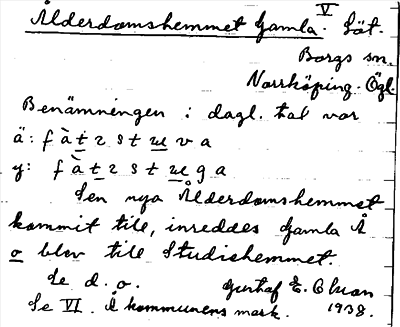 V
Ålderdomshemmet Gamla. Löt.
Borgs sn.
Norrköping. Ögl.
Benämningen i dagl. tal var
ä: f à t z s t u v a
y: f à t z s t u g a
Den nya Ålderdomshemmet
kommit till, inreddes Gamla Å
o blev till Studiehemmet.
Se d. o. Gustaf E. Olson
Se VI. Å kommunens mark. 1938.